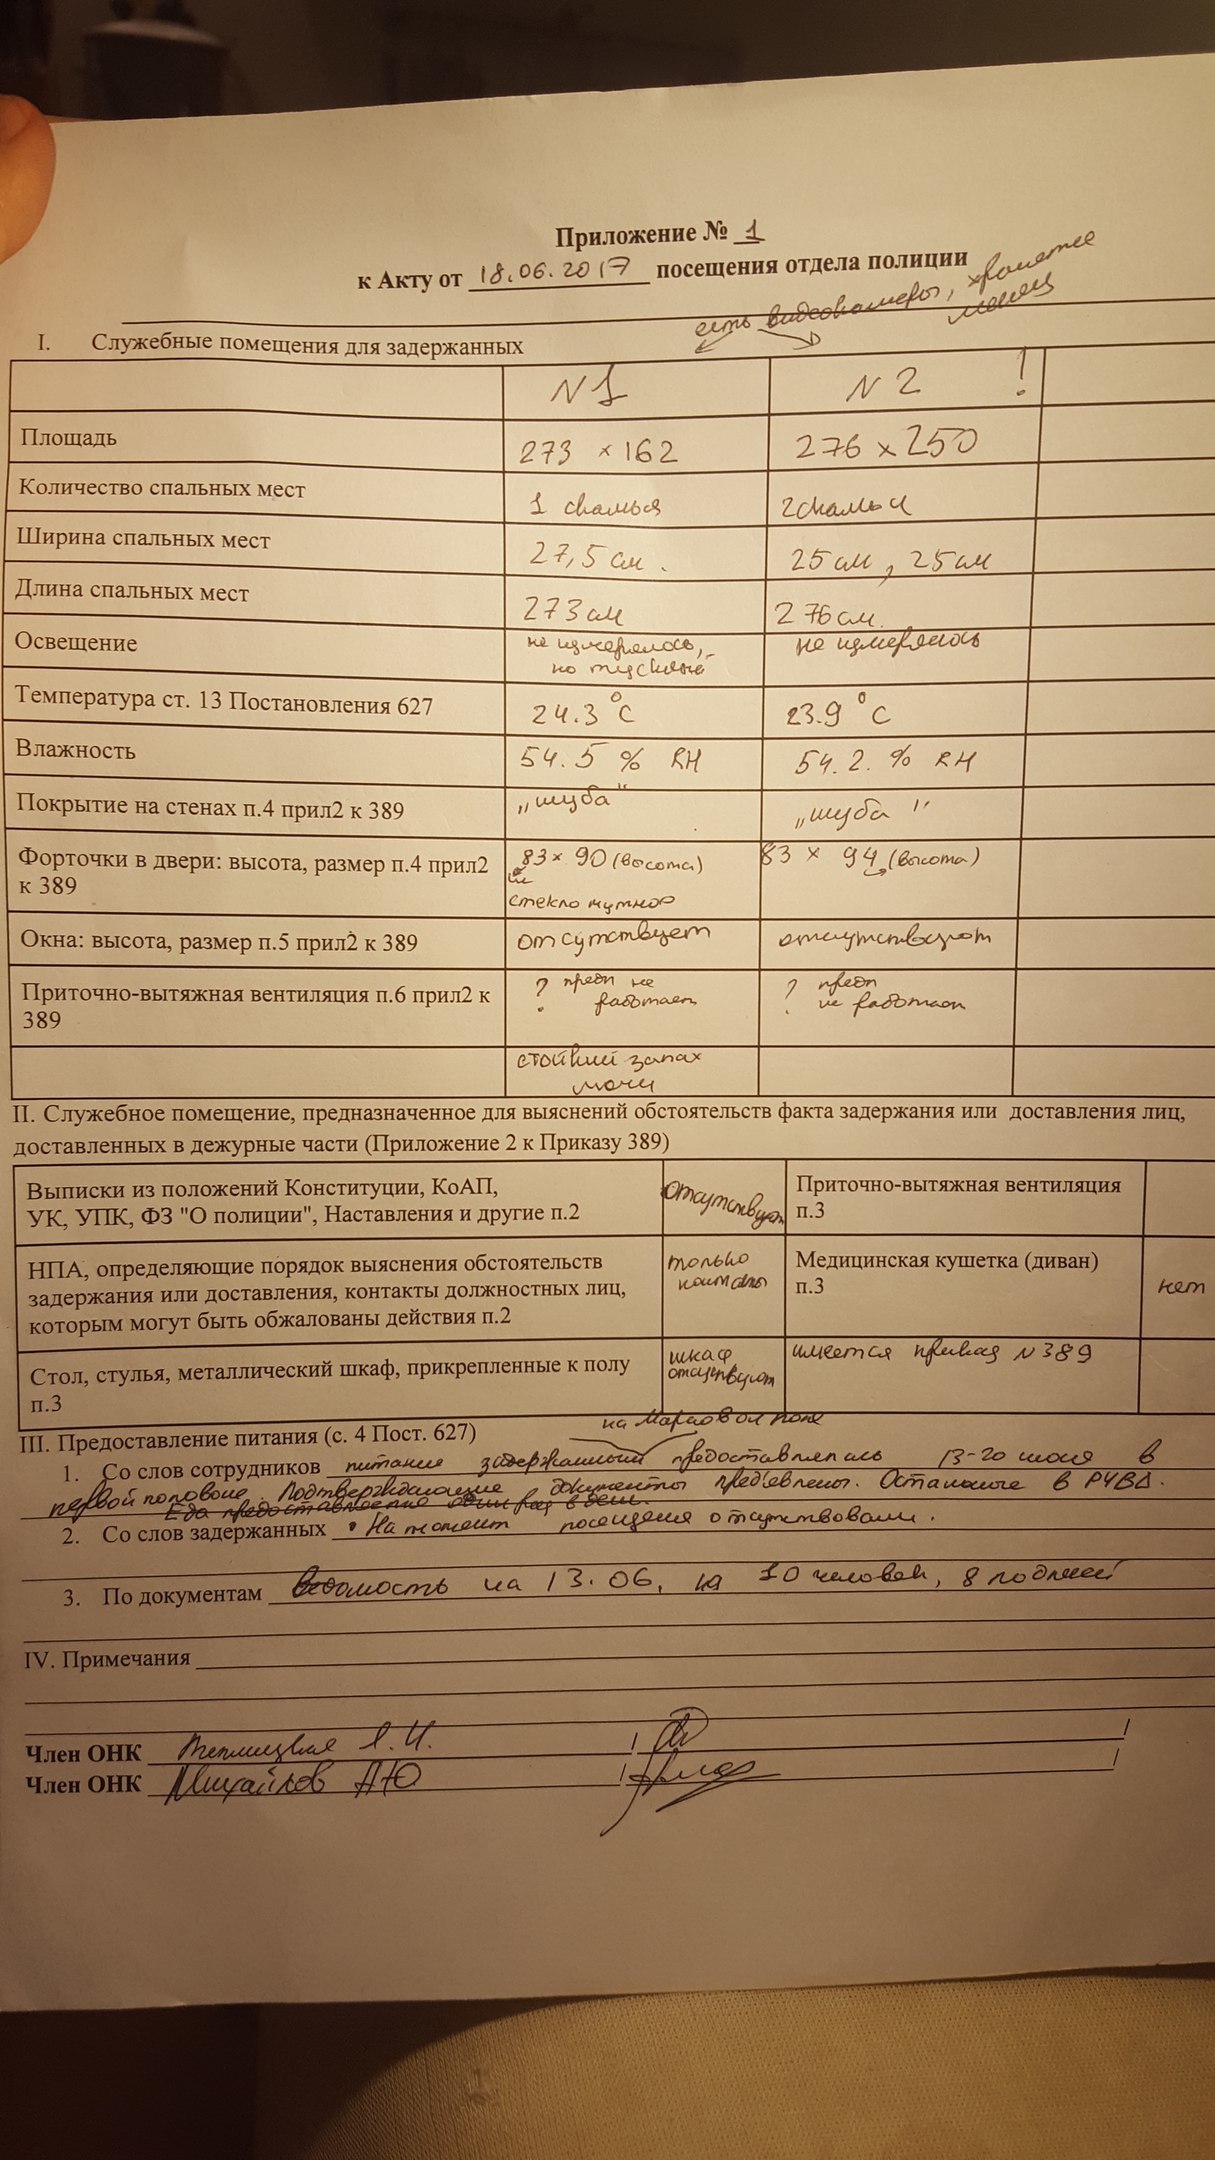 Приложение № 1
к Акту от 18.06.2017 посещения отдела полиции
есть видеокамеры, хранятся
месяц
I. Служебные помещения для задержанных
N 1 N 2 !
Площадь 273 × 162 276 × 250
Количество спальных мест 1 скамья 2 скамьи
Ширина спальных мест 27,5 см. 25 см, 25 см
Длина спальных мест 273 см 276 см.
Освещение не измерялось, не измерялось
но тусклое
Температура ст. 13 Постановления 627 24.3 °C 23.9 °C
Влажность 54.5 % RH 54.2. % RH
Покрытие на стенах п.4 прил2 к 389 „шуба" „шуба"
Форточки в двери: высота, размер п.4 прил2 83 × 90 (высота) 83 × 94 (высота)
к 389 стекло мутное
Окна: высота, размер п.5 прил2 к 389 отсутствует отсутствуют
Приточно-вытяжная вентиляция п.6 прил2 к ? предп не ? предп
389 работает не работает
стойкий запах
мочи
II. Служебное помещение, предназначенное для выяснений обстоятельств факта задержания или доставления лиц,
доставленных в дежурные части (Приложение 2 к Приказу 389)
Выписки из положений Конституции, КоАП, отсутствуют Приточно-вытяжная вентиляция
УК, УПК, ФЗ "О полиции", Наставления и другие п.2 п.3
НПА, определяющие порядок выяснения обстоятельств только Медицинская кушетка (диван)
задержания или доставления, контакты должностных лиц, контакты п.3 нет
которым могут быть обжалованы действия п.2
Стол, стулья, металлический шкаф, прикрепленные к полу шкаф имеется приказ N 389
п.3 отсутствует
на Марсовом поле
III. Предоставление питания (с. 4 Пост. 627)
1. Со слов сотрудников питание задержанным предоставлялось 13-20 июня в
первой половине. Подтверждающие документы предъявлены. Остальные в РУВД.
Еда предоставлена один раз в день.
2. Со слов задержанных На момент посещения отсутствовали.
3. По документам ведомость на 13.06, на 10 человек, 8 подписей
IV. Примечания
Член ОНК Теплицкая Я.И. / /
Член ОНК Михайлов АЮ / /